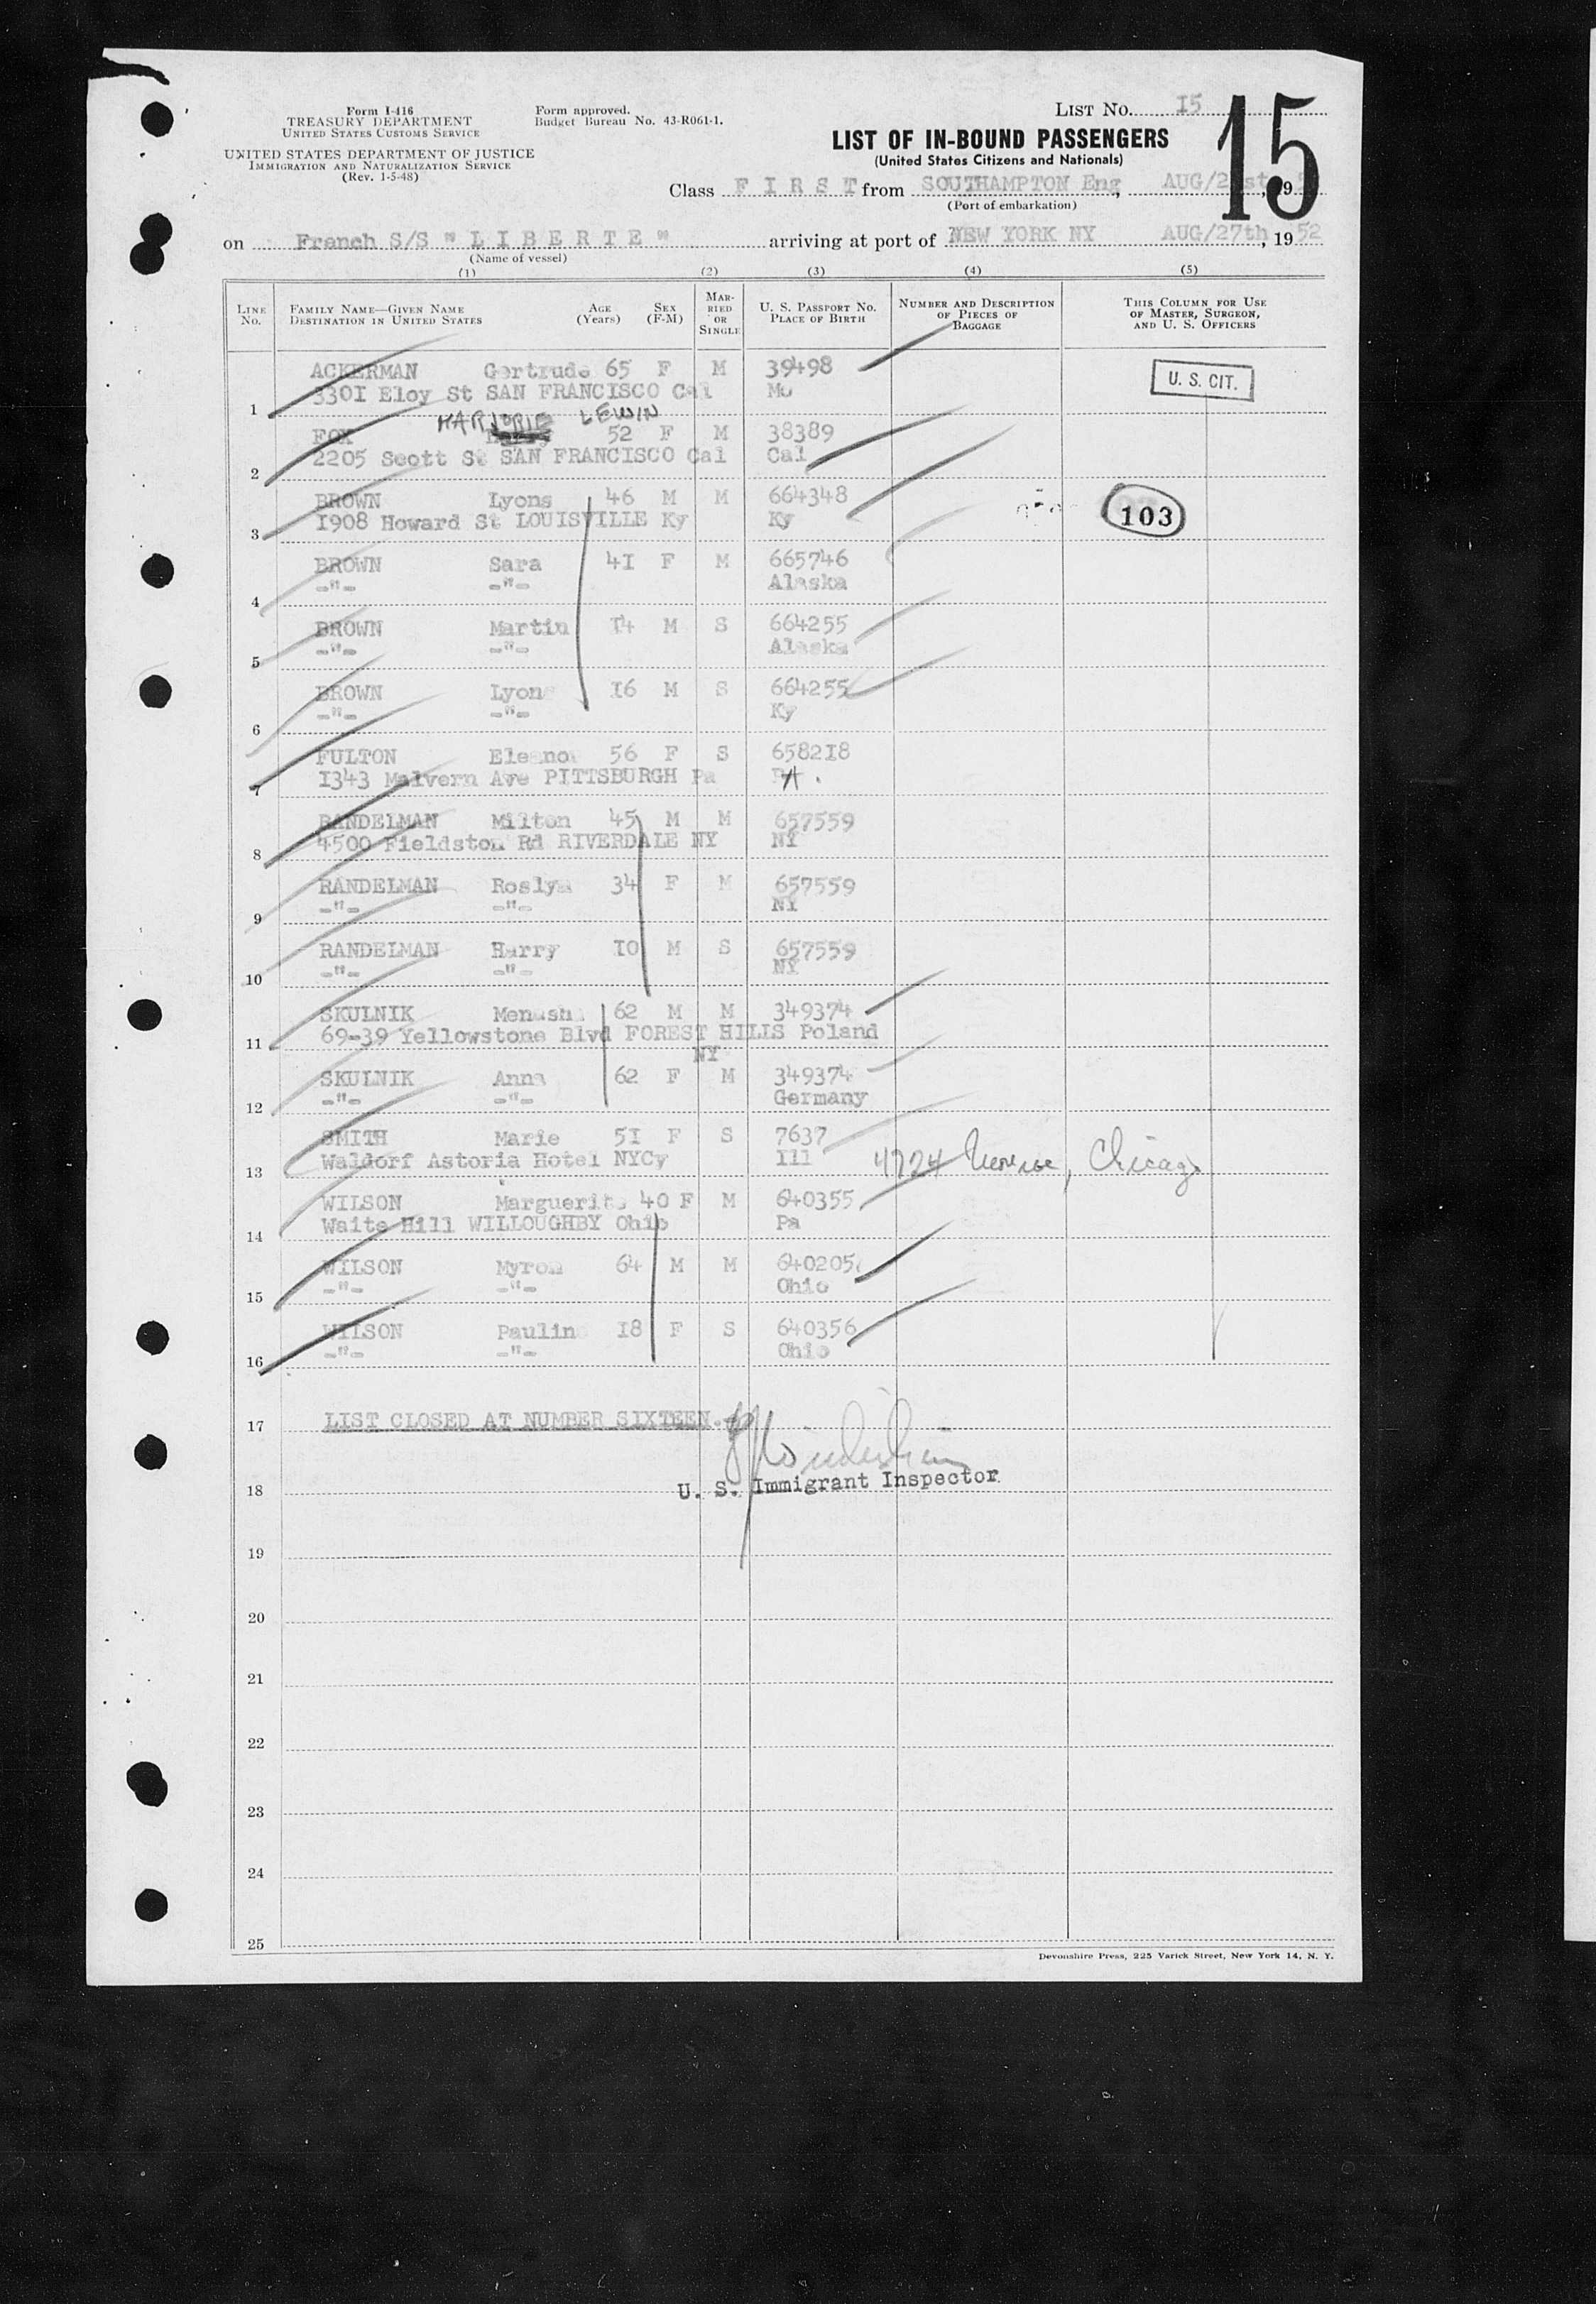 Form I-416
TREASURY DEPARTMENT
UNITED STATES CUSTOMS SERVICE
UNITED STATES DEPARTMENT OF JUSTICE
IMMIGRATION AND NATURALIZATION SERVICE
(Rev. 1-5-48)
Form approved.
Budget Bureau No. 43-R061-1.
LIST NO. 15
15
LIST OF IN-BOUND PASSENGERS
(United States Citizens and Nationals)
Class F I R S T from SOUTHAMPTON Eng, AUG/21st, 19
(Port of embarkation)
on French S/S " L I B E R T E " arriving at port of NEW YORK NY AUG/27th, 1952
(Name of vessel)
(1) (2) (3) (4) (5)
LINE NO. FAMILY NAME—GIVEN NAME DESTINATION IN UNITED STATES AGE (Years) SEX (F-M) MARRIED OR SINGLE U. S. PASSPORT NO. PLACE OF BIRTH NUMBER AND DESCRIPTION OF PIECES OF BAGGAGE THIS COLUMN FOR USE OF MASTER, SURGEON, AND U. S. OFFICERS
ACKERMAN Gertrude 65 F M 39498
U. S. CIT.
1 3301 Eloy St SAN FRANCISCO Cal Mo
MARJORIE LEWIN
FOX 52 F M 38389
2 2205 Scott St SAN FRANCISCO Cal Cal
BROWN Lyons 46 M M 664348
103
3 1908 Howard St LOUISVILLE Ky Ky
BROWN Sara 41 F M 665746
4 -"- -"- Alaska
BROWN Martin 14 M S 664255
5 -"- -"- Alaska
BROWN Lyon 16 M S 664255
6 -"- -"- Ky
FULTON Eleanor 56 F S 658218
7 1343 Malvern Ave PITTSBURGH Pa PA.
RANDELMAN Milton 45 M M 657559
8 4500 Fieldston Rd RIVERDALE NY NY
RANDELMAN Roslyn 34 F M 657559
9 -"- -"- NY
RANDELMAN Harry 10 M S 657559
10 -"- -"- NY
SKULNIK Menasha 62 M M 349374
11 69-39 Yellowstone Blvd FOREST HILLS Poland
NY
SKULNIK Anna 62 F M 349374
12 -"- -"- Germany
SMITH Marie 51 F S 7637
13 Waldorf Astoria Hotel NYCy Ill 4724 Monroe, Chicago
WILSON Marguerite 40 F M 640355
14 Waite Hill WILLOUGHBY Ohio Pa
WILSON Myron 64 M M 640205
15 -"- -"- Ohio
WILSON Pauline 18 F S 640356
16 -"- -"- Ohio
17 LIST CLOSED AT NUMBER SIXTEEN.
18 U. S. Immigrant Inspector
19
20
21
22
23
24
25
Devonshire Press, 225 Varick Street, New York 14, N. Y.